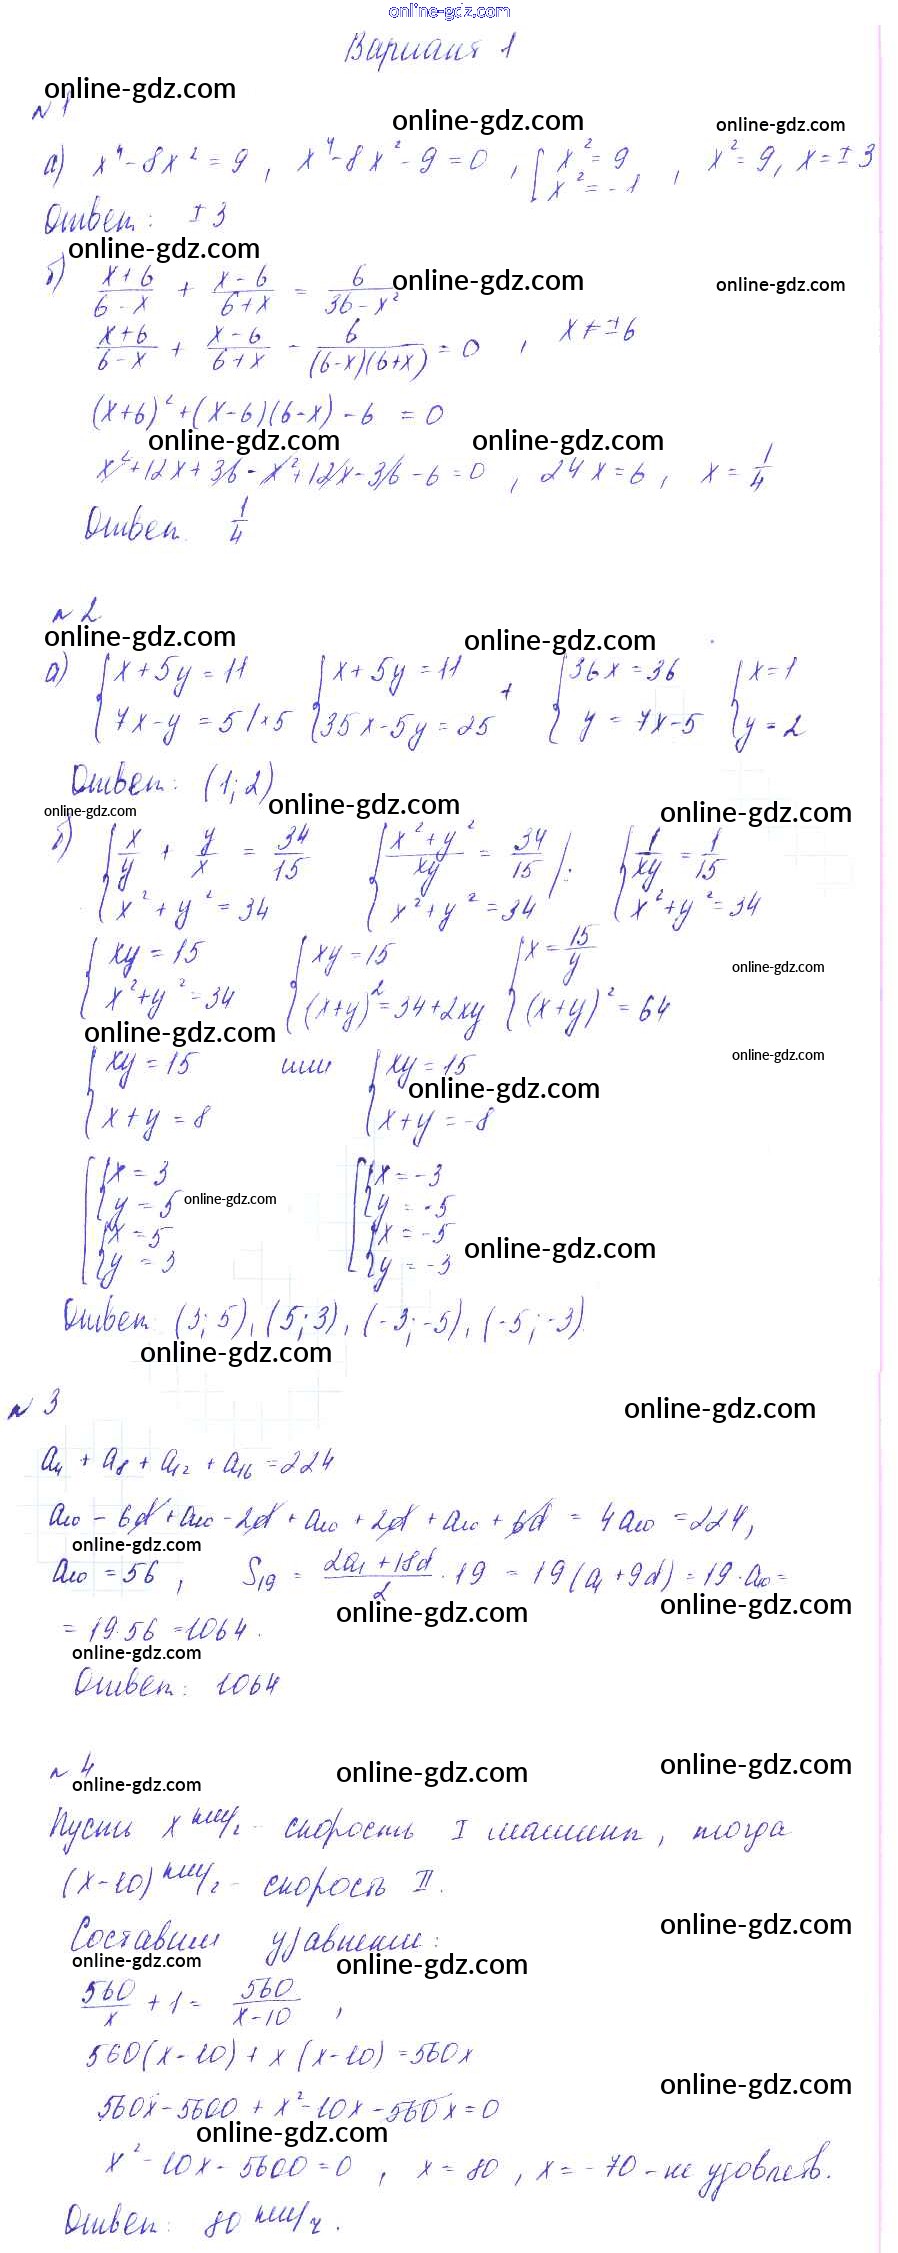 online-gdz.com
Вариант 1
online-gdz.com
№ 1
online-gdz.com
online-gdz.com
а) x⁴ - 8x² = 9, x⁴ - 8x² - 9 = 0, [x² = 9 x² = -1, x² = 9, x = ± 3
Ответ: ± 3
online-gdz.com
б) (x+6)/(6-x) + (x-6)/(6+x) = 6/(36-x²)
online-gdz.com
online-gdz.com
(x+6)/(6-x) + (x-6)/(6+x) - 6/((6-x)(6+x)) = 0, x ≠ ±6
(x+6)² + (x-6)(6-x) - 6 = 0
online-gdz.com
online-gdz.com
x² + 12x + 36 - x² + 12x - 36 - 6 = 0, 24x = 6, x = 1/4
Ответ. 1/4
№ 2
online-gdz.com
online-gdz.com
а) {x + 5y = 11 {x + 5y = 11 + {36x = 36 {x = 1
7x - y = 5 | ×5 35x - 5y = 25 y = 7x - 5 y = 2
Ответ: (1; 2)
online-gdz.com
online-gdz.com
online-gdz.com
б) {x/y + y/x = 34/15 {(x² + y²)/xy = 34/15 ): {1/xy = 1/15
x² + y² = 34 x² + y² = 34 x² + y² = 34
{xy = 15 {xy = 15 {x = 15/y
online-gdz.com
x² + y² = 34 (x+y)² = 34 + 2xy (x+y)² = 64
online-gdz.com
online-gdz.com
{xy = 15 или {xy = 15
online-gdz.com
x + y = 8 x + y = -8
[{x = 3 [{x = -3
y = 5 y = -5
online-gdz.com
{x = 5 {x = -5
online-gdz.com
y = 3 y = -3
Ответ: (3; 5), (5; 3), (-3; -5), (-5; -3).
online-gdz.com
№ 3
online-gdz.com
a₄ + a₈ + a₁₂ + a₁₆ = 224
a₁₀ - 6d + a₁₀ - 2d + a₁₀ + 2d + a₁₀ + 6d = 4a₁₀ = 224,
online-gdz.com
a₁₀ = 56, S₁₉ = (2a₁ + 18d)/2 · 19 = 19(a₁ + 9d) = 19·a₁₀ =
online-gdz.com
online-gdz.com
= 19·56 = 1064.
online-gdz.com
Ответ: 1064
№ 4
online-gdz.com
online-gdz.com
online-gdz.com
Пусть x км/ч - скорость I машины, тогда
(x-10) км/ч - скорость II.
online-gdz.com
Составим уравнение:
online-gdz.com
online-gdz.com
560/x + 1 = 560/(x-10),
560(x-10) + x(x-10) = 560x
online-gdz.com
560x - 5600 + x² - 10x - 560x = 0
online-gdz.com
x² - 10x - 5600 = 0, x = 80, x = -70 - не удовлетв.
Ответ: 80 км/ч.